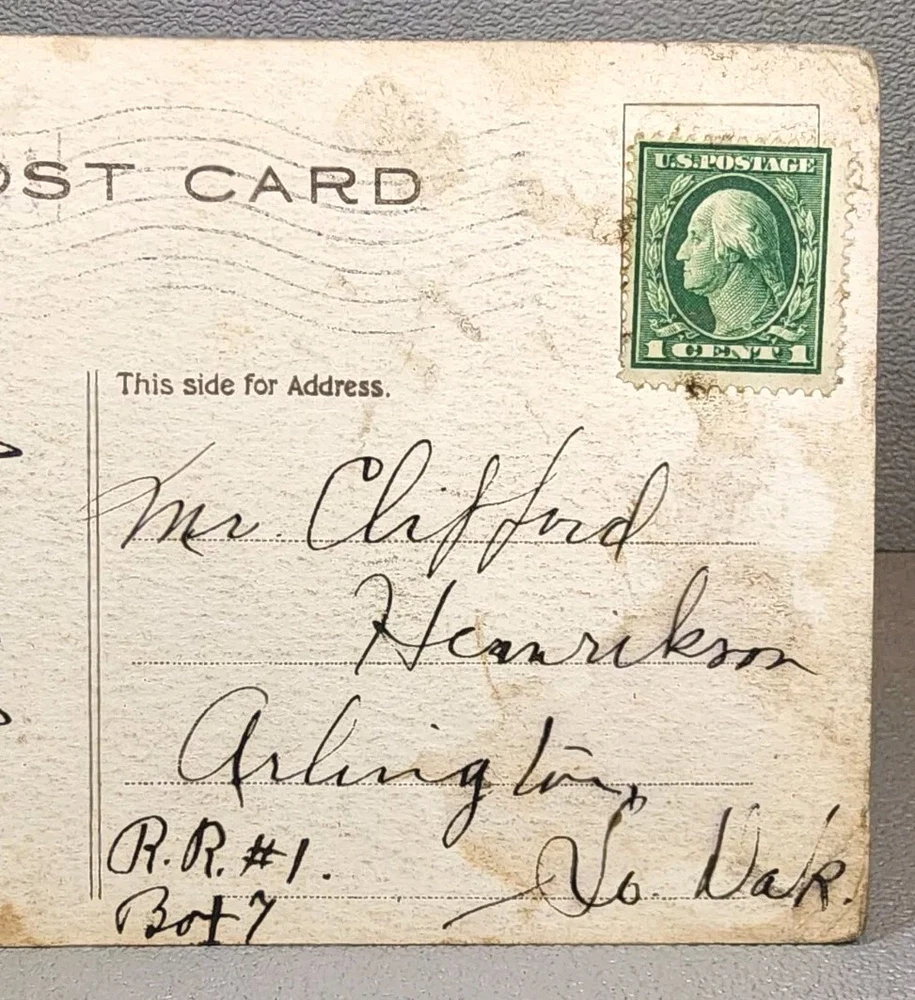 OST CARD
U.S. POSTAGE
1 CENT 1
This side for Address.
Mr. Clifford
Henrikson
Arlington,
So. Dak.
R.R. #1.
Box 7